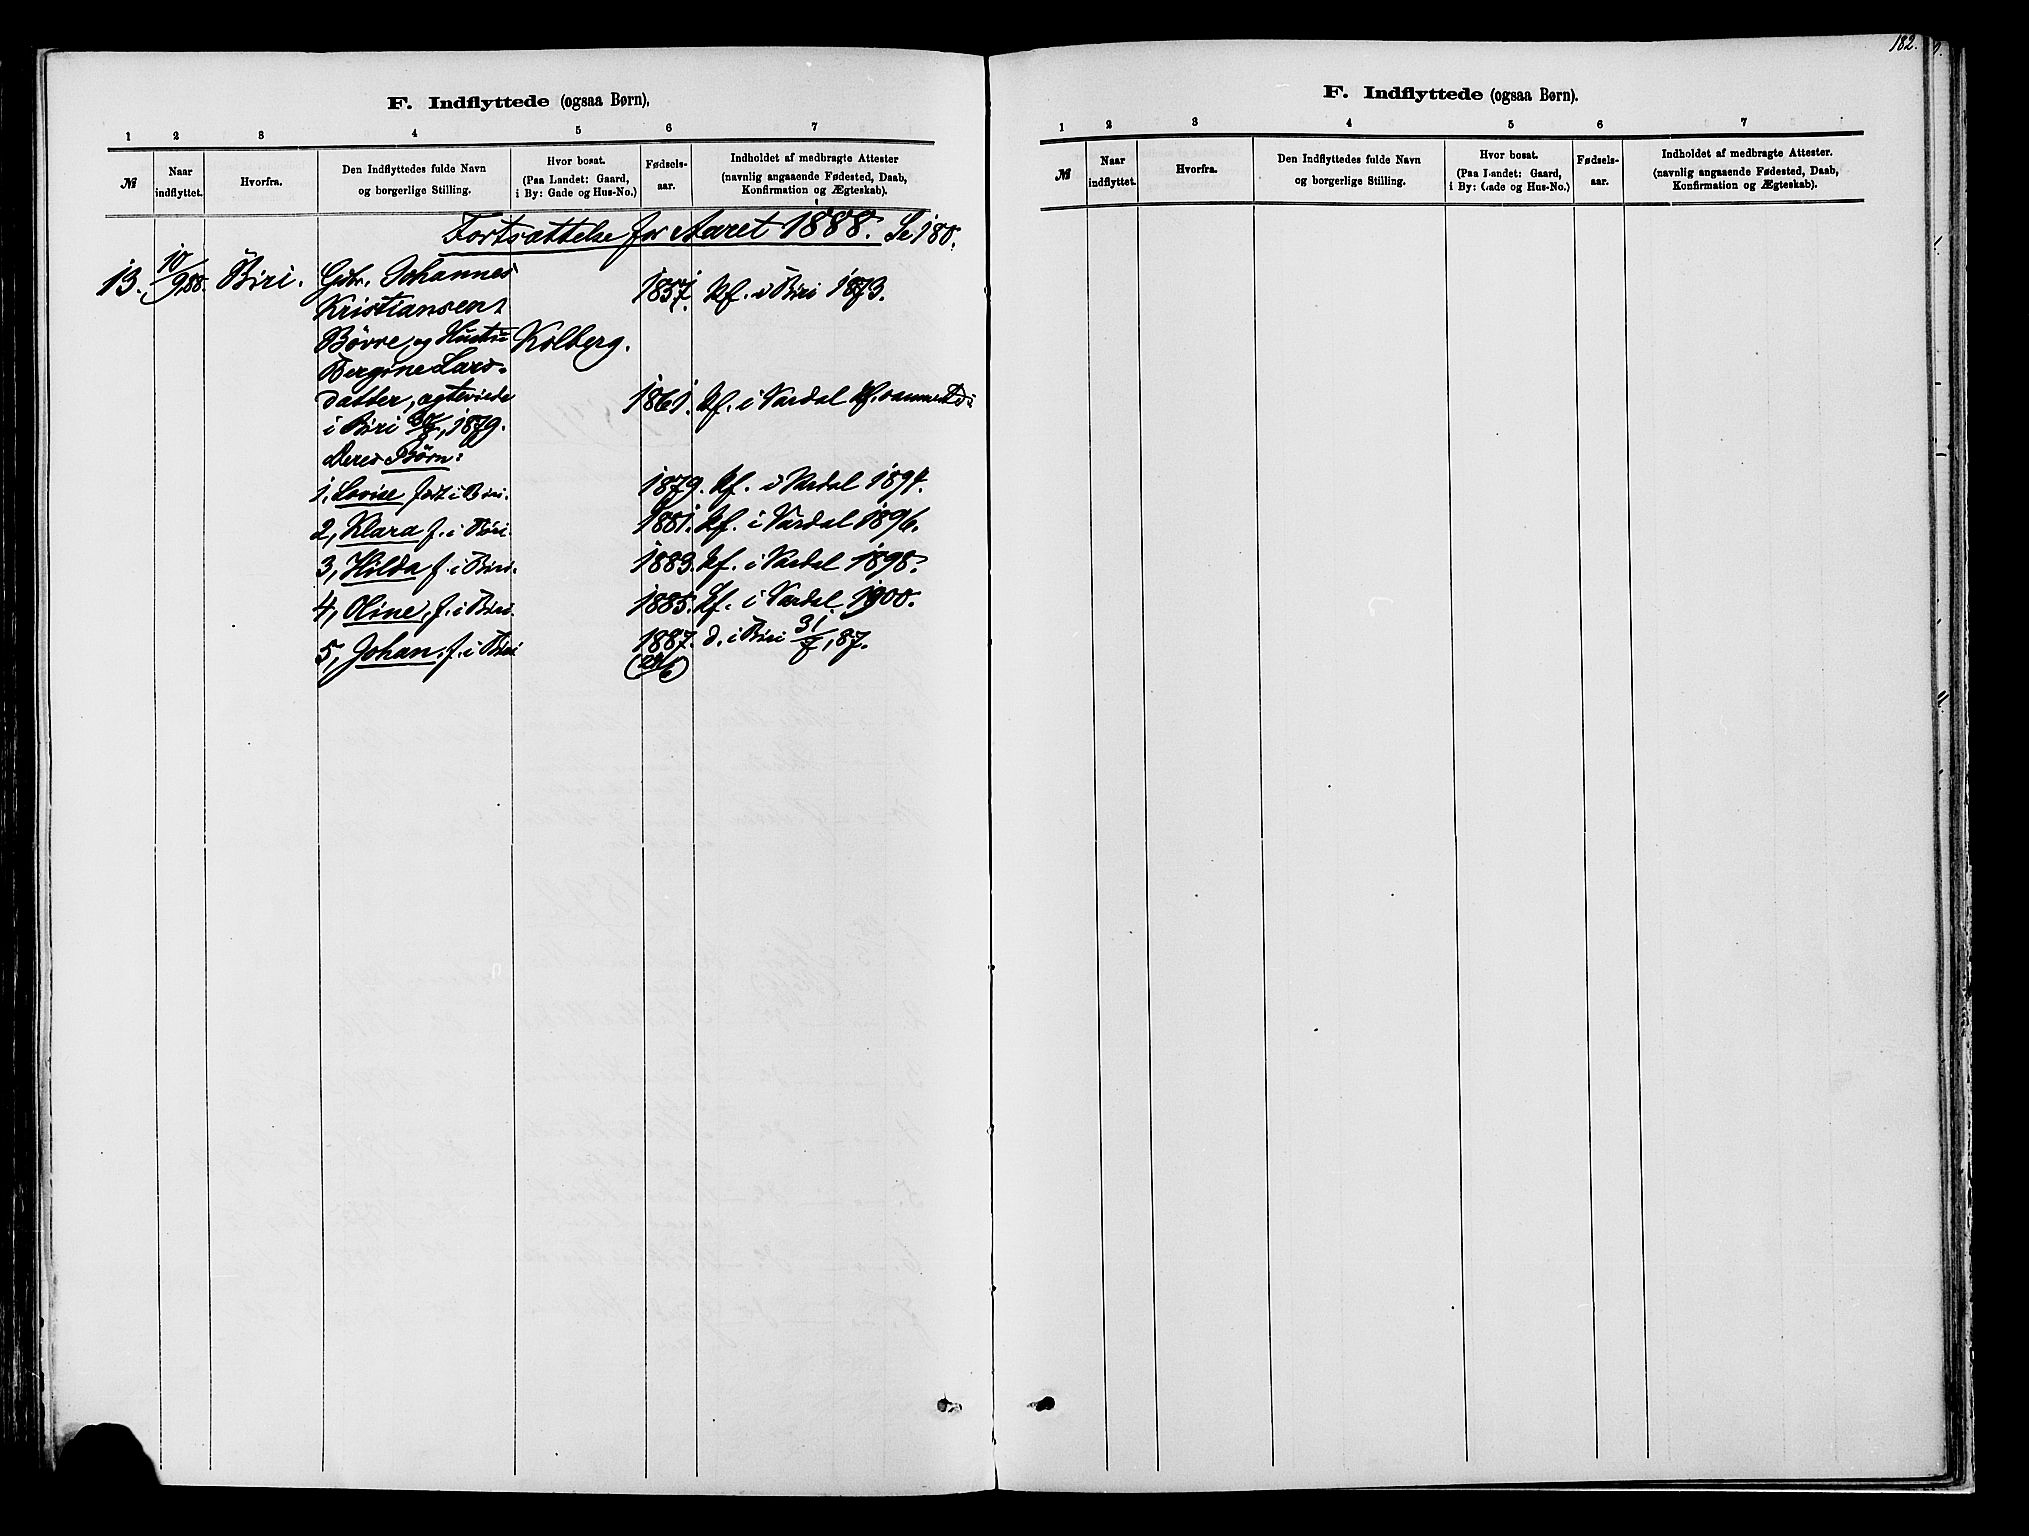 182.
F. Indflyttede (ogsaa Børn).
1 2 3 4 5 6 7
№ Naar indflyttet. Hvorfra. Den Indflyttedes fulde Navn og borgerlige Stilling. Hvor bosat. (Paa Landet: Gaard, i By: Gade og Hus-No.) Fødsels-aar. Indholdet af medbragte Attester (navnlig angaaende Fødested, Daab, Konfirmation og Ægteskab).
Fortsættelse for Aaret 1888. Se 180.
13. 10/9 88. Biri. Gbr. Johannes
Kristiansen 1857. Kf. i Biri 1873.
Børre, og Hustru Kolberg.
Bergine Lars-
datter, ægteviede 1861. Kf. i Vardal
i Biri 1879.
Deres Børn:
1, Lovise født i Biri. 1879. Kf. i Vardal 1894.
2, Klara f. i Biri. 1881. Kf. i Vardal 1896.
3, Hilda f. i Biri. 1883. Kf. i Vardal 1898.
4, Oline, f. i Biri. 1885. Kf. i Vardal 1900.
5, Johan, f. i Biri 1887. d. i Biri 31/7, 87.
F. Indflyttede (ogsaa Børn).
1 2 3 4 5 6 7
№ Naar indflyttet. Hvorfra. Den Indflyttedes fulde Navn og borgerlige Stilling. Hvor bosat. (Paa Landet: Gaard, i By: Gade og Hus-No.) Fødsels-aar. Indholdet af medbragte Attester. (navnlig angaaende Fødested, Daab, Konfirmation og Ægteskab).